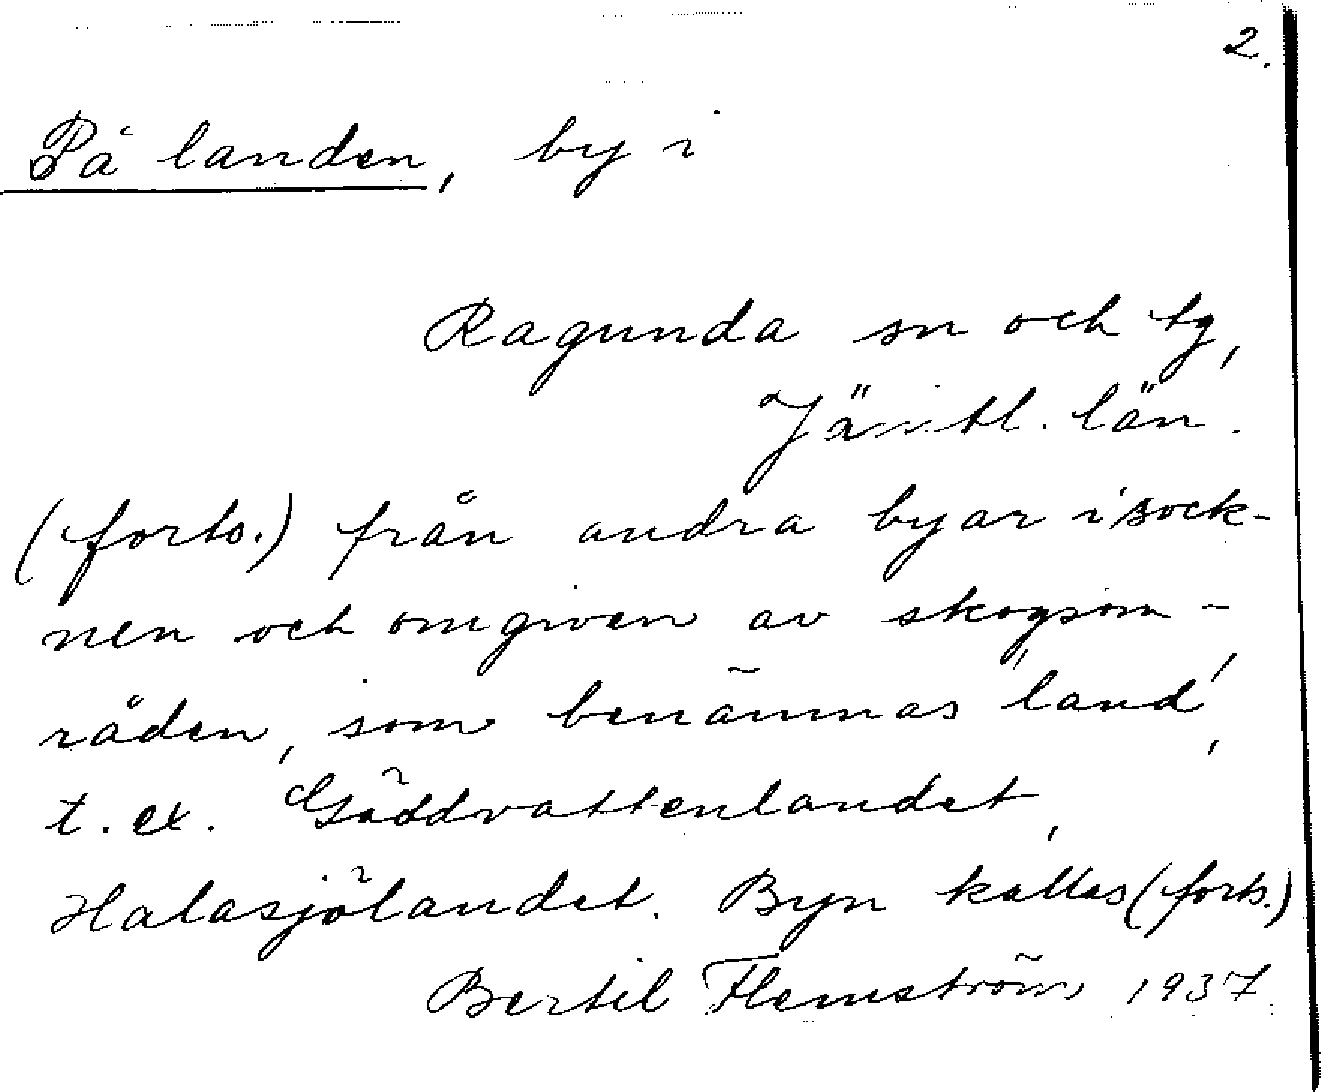 2.
På landen, by i
Ragunda sn och tg,
Jämtl. län.
(forts.) från andra byar i sock-
nen och omgiven av skogsom-
råden, som benämnas 'land',
t.ex. Gäddvattenlandet,
Halasjölandet. Byn kallas (forts.)
Bertil Flemström 1937.